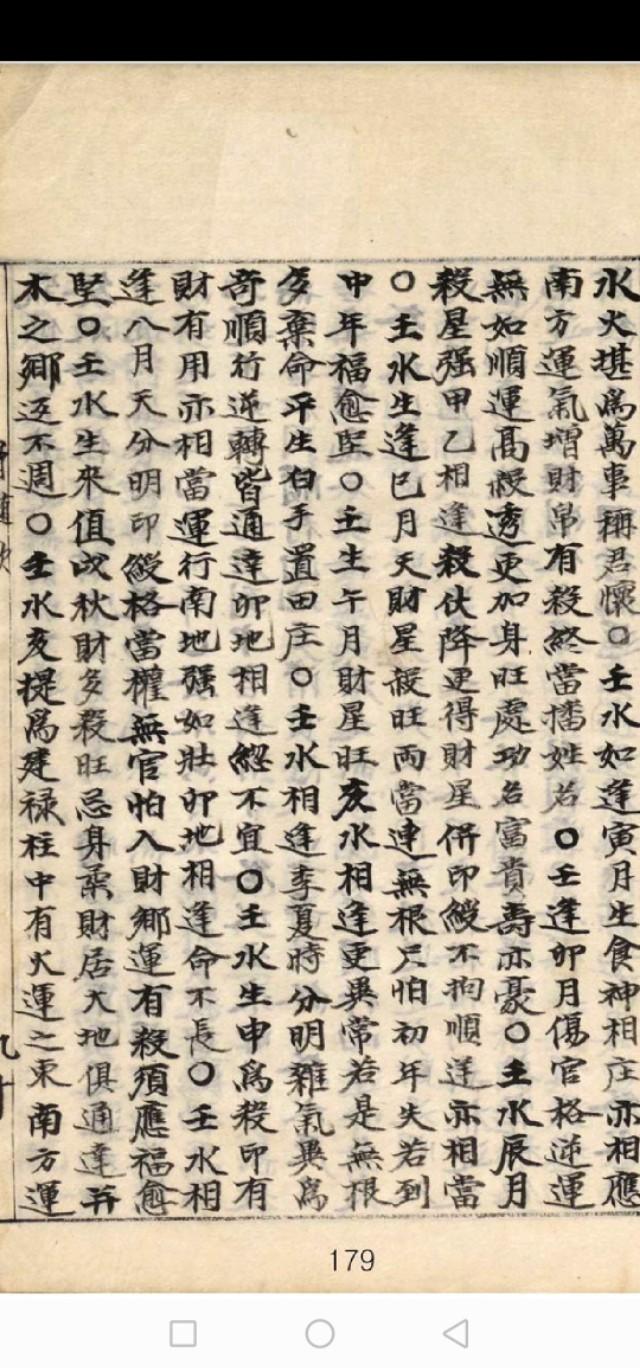 水火堪為萬事稱君懷○壬水如逢寅月生食神相庄亦相應
南方運氣增財帛有殺終當播姓名○壬逢卯月傷官格逆運
無如順運高殺透更加身旺處功名富貴壽亦豪○壬水辰月
殺星强甲乙相逢殺伏降更得財星併印綬不拘順逆亦相當
○壬水生逢巳月天財星殺旺两當連無根只怕初年失若到
申年福愈堅○壬生午月財星旺亥水相逢更異常若是無根
多棄命平生白手置田庄○壬水相逢季夏時分明雜氣異為
奇順行逆轉皆通達卯地相逢總不宜○壬水生申為殺印有
財有用亦相當運行南地强如壯卯地相逢命不長○壬水相
逢八月天分明印綬格當權無官怕入財鄉運有殺須應福愈
堅○壬水生來值戌秋財多殺旺忌身柔財居大地俱通達并
木之鄉返不週○壬水亥提為建禄柱中有火運之東南方運
九十
179